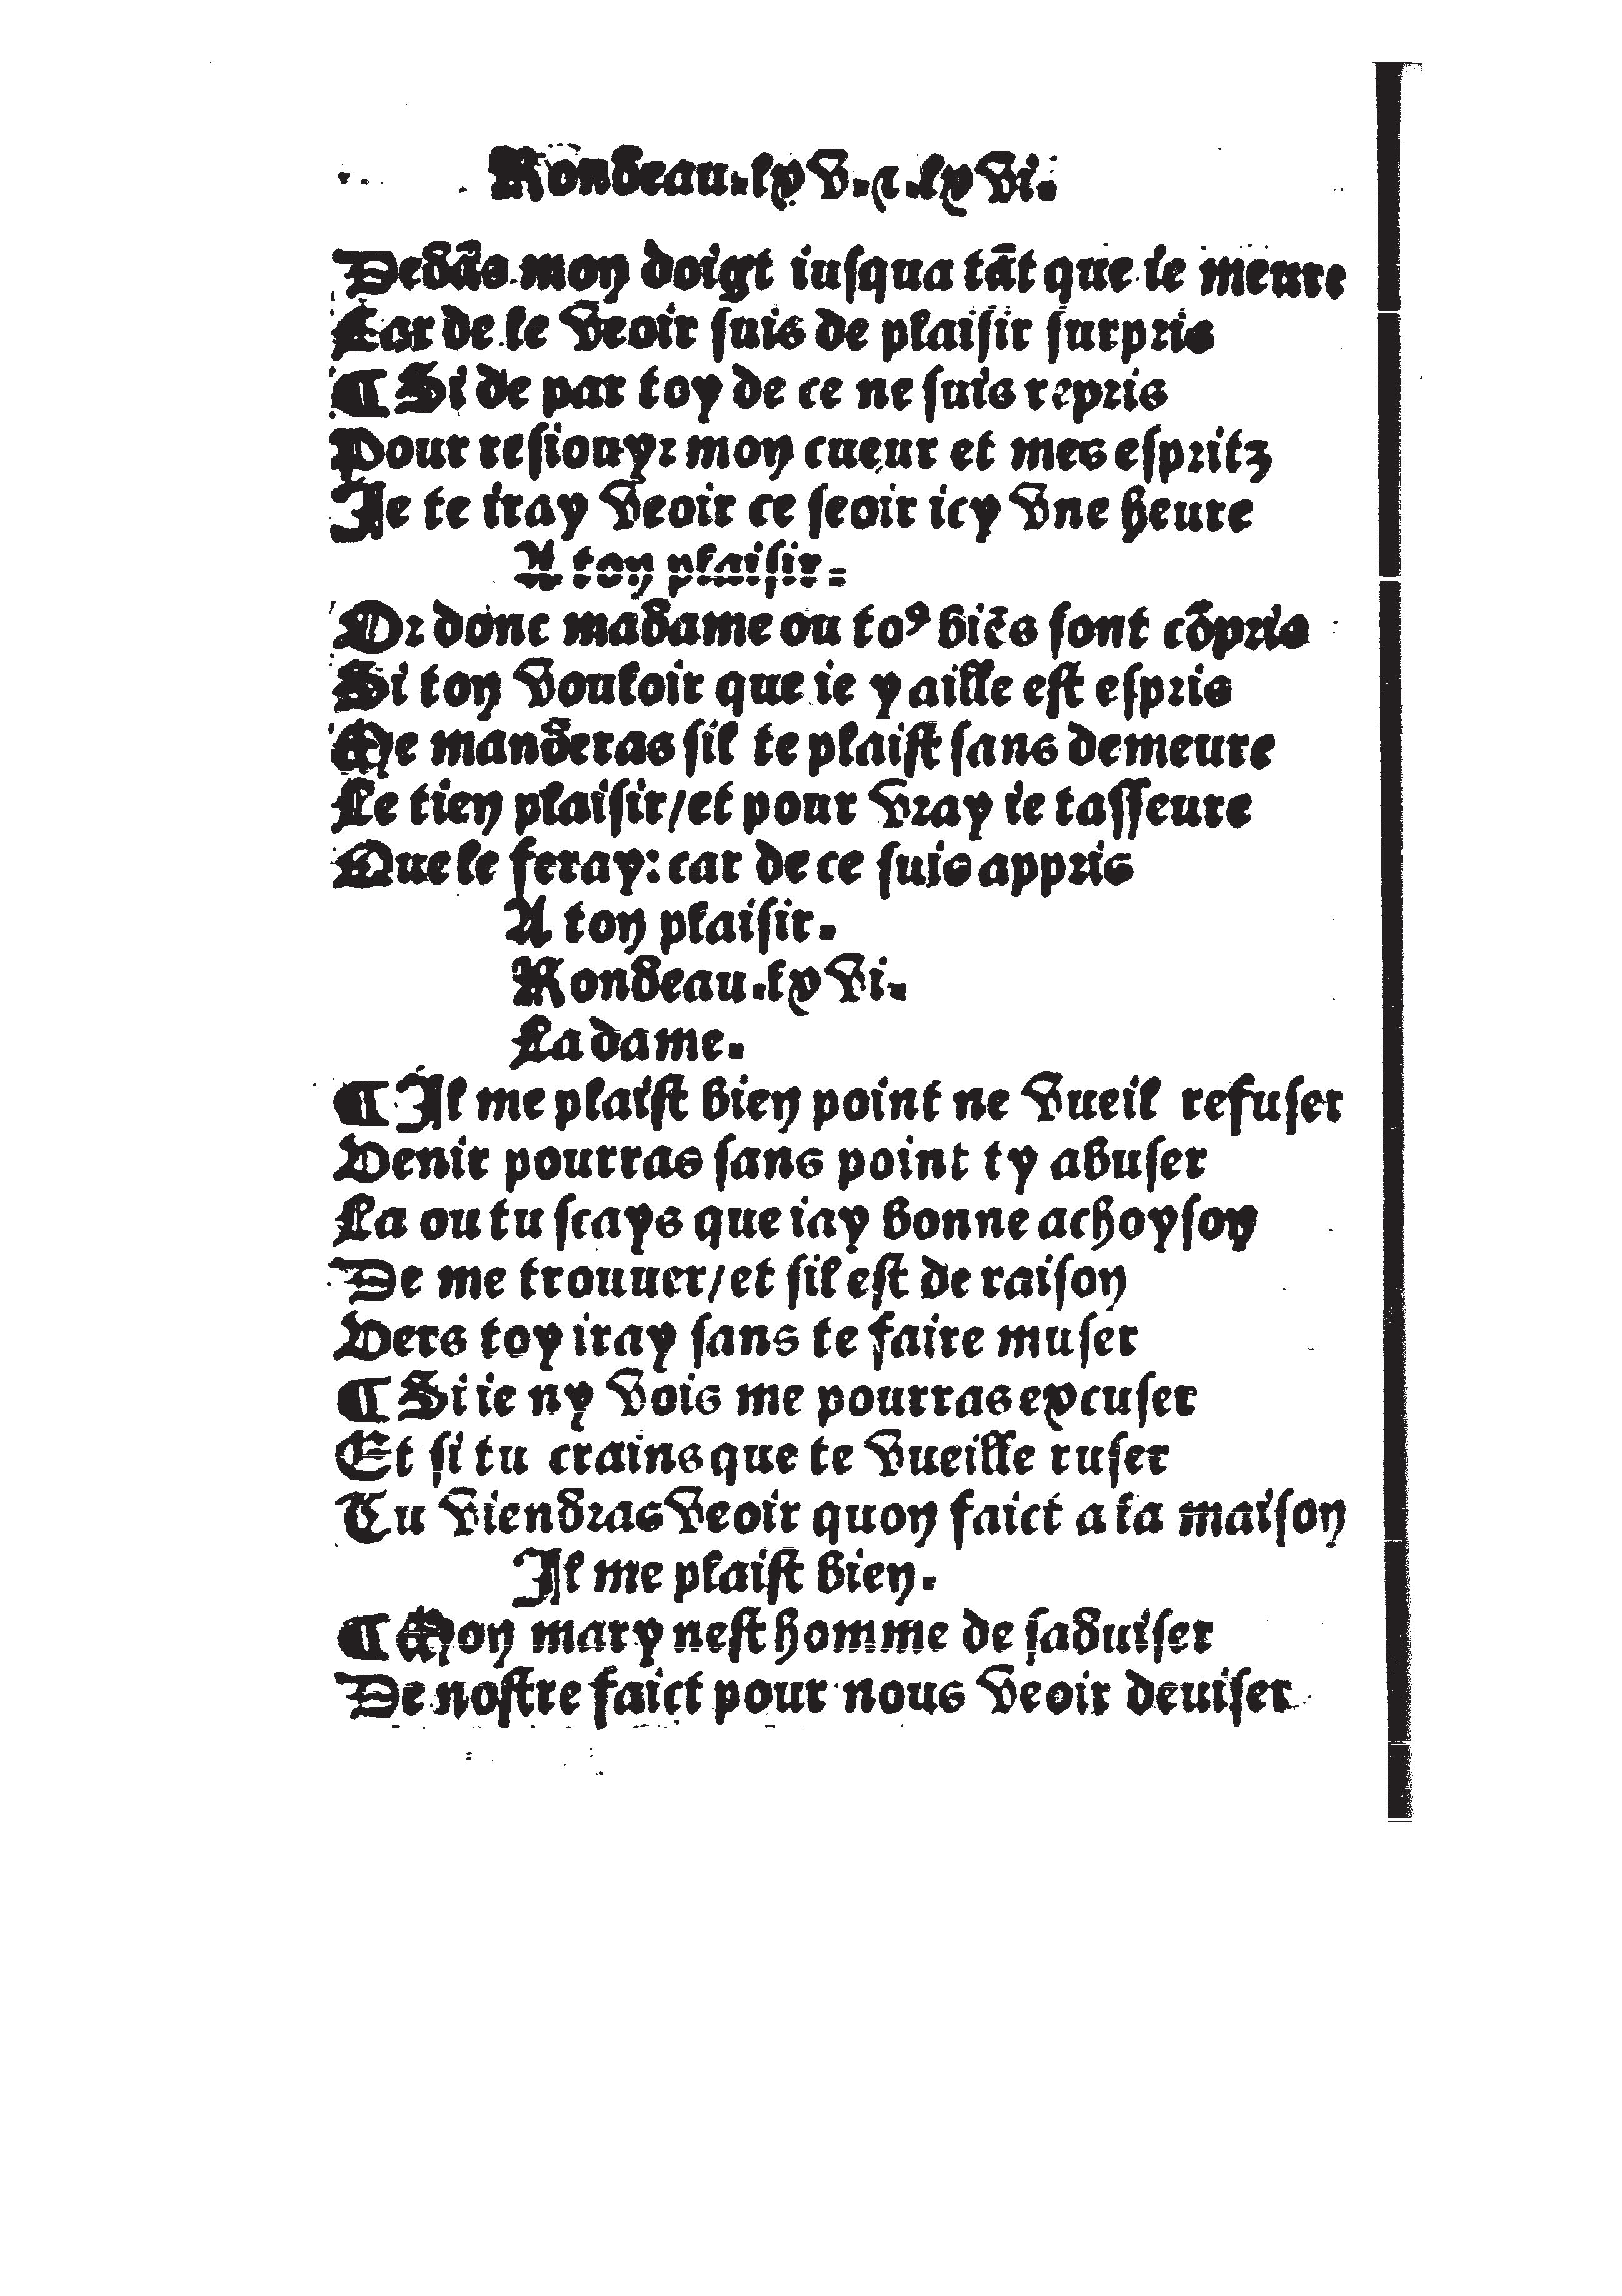 Rondeau.lxv.⁊.lxvi.
Dedãs mon doigt iusqua tãt que ie meure
Car de le veoir suis de plaisir surpris
¶ Si de par toy de ce ne suis repris
Pour resiouyr mon cueur et mes espritz
Je te iray veoir ce seoir icy vne heure
A ton plaisir.
Or donc madame ou to⁹ biẽs sont cõpris
Si ton vouloir que ie y aille est espris
Me manderas sil te plaist sans demeure
Le tien plaisir/et pour vray ie tasseure
Que le feray: car de ce suis appris
A ton plaisir.
Rondeau.lxvi.
La dame.
¶ Il me plaist bien point ne vueil refuser
Venir pourras sans point ty abuser
La ou tu scays que iay bonne achoyson
De me trouuer/et sil est de raison
Vers toy iray sans te faire muser
¶ Si ie ny vois me pourras excuser
Et si tu crains que te vueille ruser
Tu viendras veoir quon faict a la maison
Il me plaist bien.
¶ Mon mary nest homme de saduiser
De nostre faict pour nous veoir deuiser